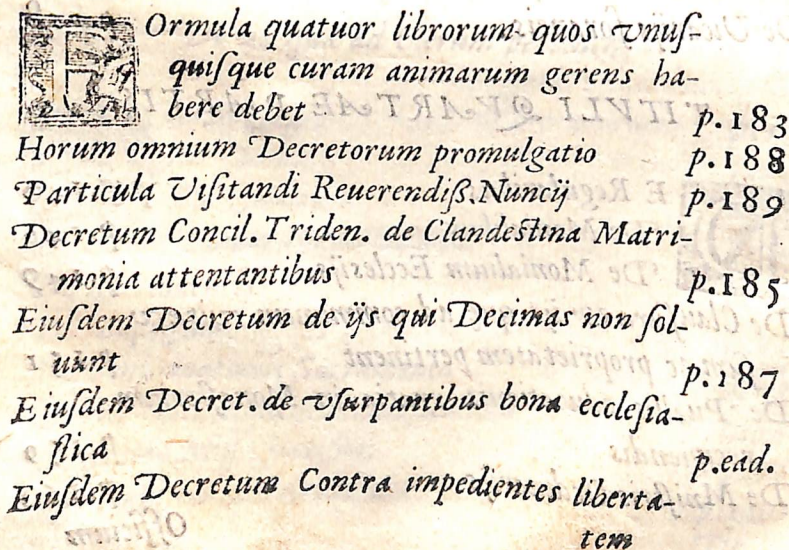 FOrmula quatuor librorum quos vnuſ-
quiſque curam animarum gerens ha-
bere debet p.183
Horum omnium Decretorum promulgatio p.188
Particula Viſitandi Reuerendiß. Nuncij p.189
Decretum Concil. Triden. de Clandeſtina Matri-
monia attentantibus p.185
Eiuſdem Decretum de ijs qui Decimas non ſol-
uunt p.187
Eiuſdem Decret. de vſurpantibus bona eccleſia-
ſtica p.ead.
Eiuſdem Decretum Contra impedientes liberta-
tem